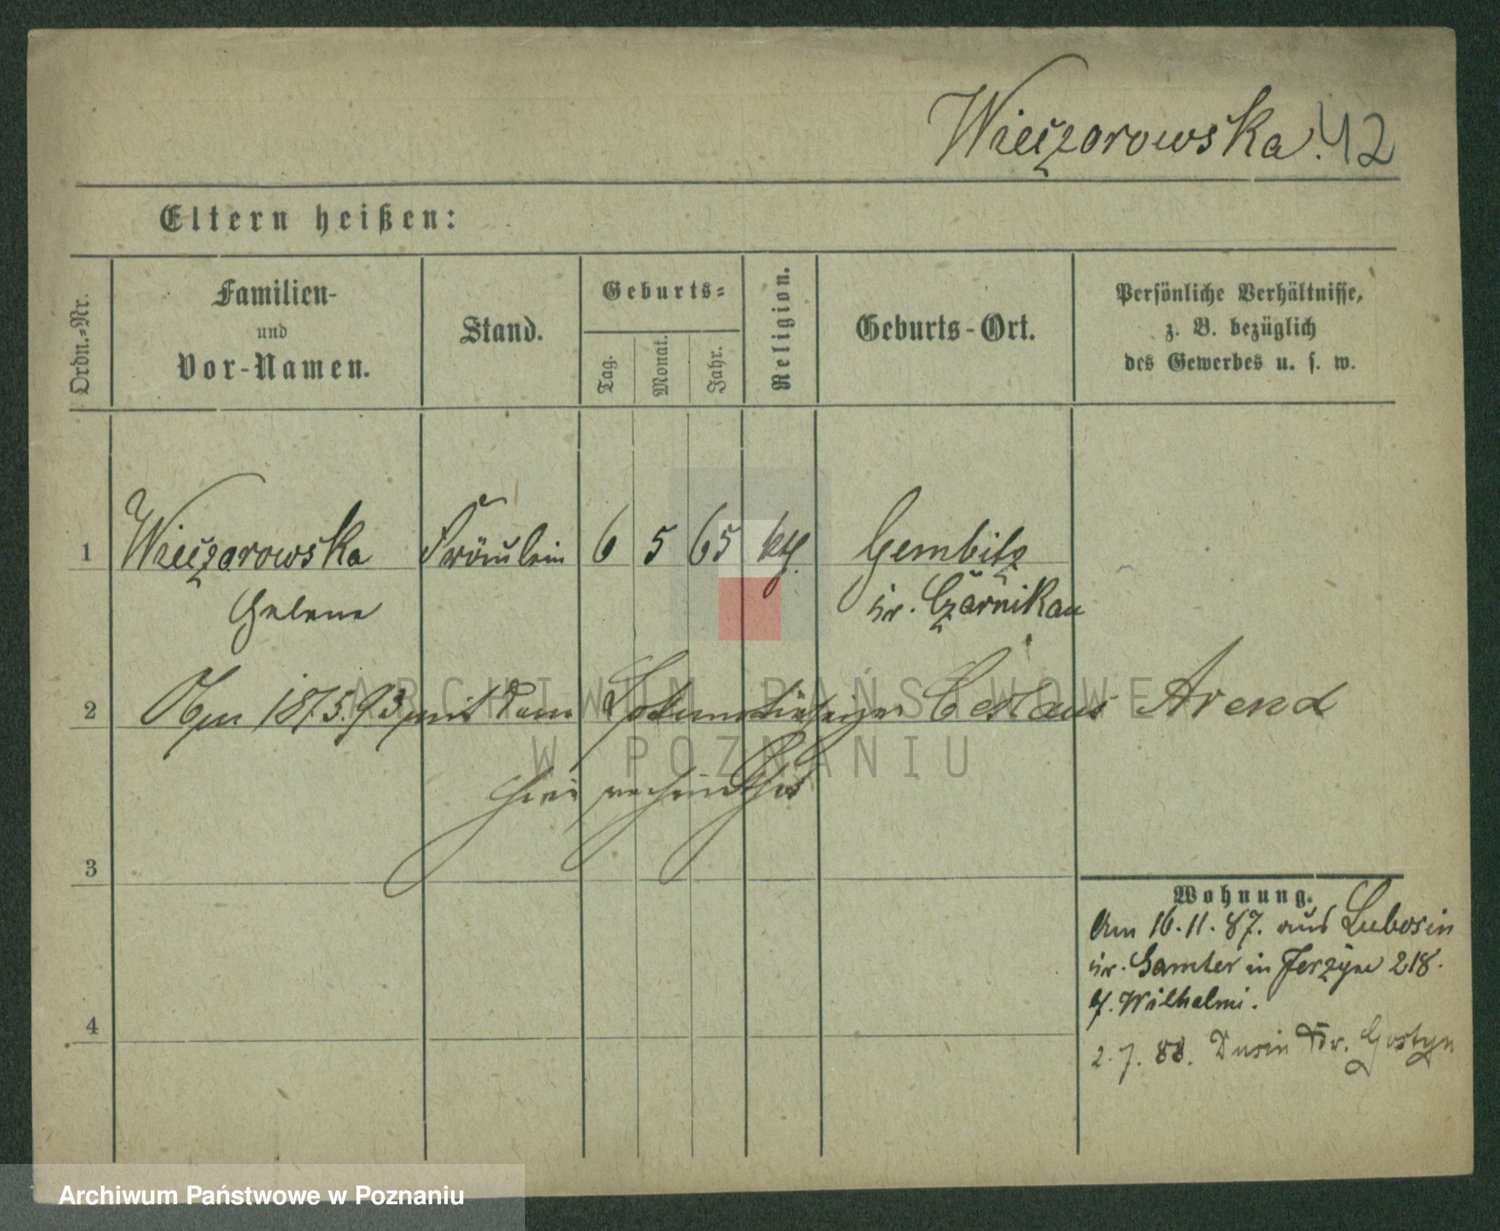 Wieczorowska. 42
Eltern heißen:
Ordn.-Nr.
Familien-
und
Vor-Namen.
Stand.
Geburts-
Tag.
Monat.
Jahr.
Religion.
Geburts-Ort.
Persönliche Verhältnisse,
z. B. bezüglich
des Gewerbes u. s. w.
1 Wieczorowska Fräulein 6 5 65 kth. Gembitz
Helene Kr. Czarnikau
2 Am 18/5.93 mit dem Ceslaus Arend
hier verheirathet
3
4
Wohnung.
Am 16.11.87. aus Lubosin
Kr. Samter in Jerzyce 218.
b/. Wilhelmi.
2.7.88. Dusin Kr. Gostyn
ARCHIWUM PAŃSTWOWE
W POZNANIU
Archiwum Państwowe w Poznaniu